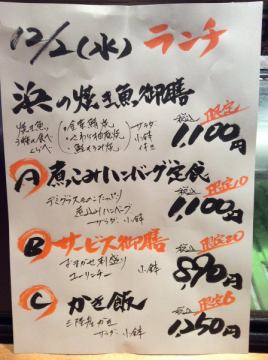 12/2(水) ランチ
浜の焼き魚御膳
焼き魚
食べ
くらべ
サラダ
小鉢
付き
税込 限定
1,100円
A 煮こみハンバーグ定食
税込 限定10
1,100円
デミグラス
煮込みハンバーグ
サラダ 小鉢
B サービス御膳
税込 限定20
おまかせ刺盛り
ユーリンチー
小鉢
890円
C かき飯
税込 限定6
三陸産かき
サラダ 小鉢
1,250円